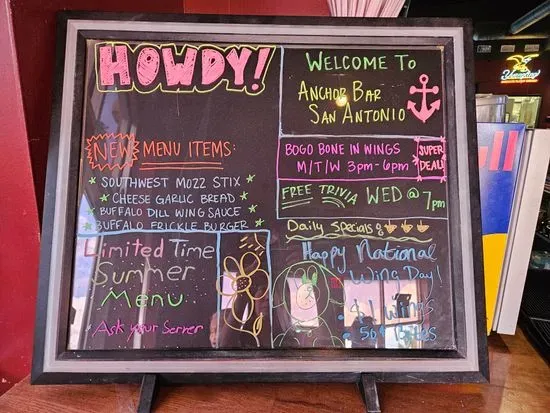 HOWDY!
WELCOME TO
ANCHOR BAR
SAN ANTONIO
NEW MENU ITEMS:
SOUTHWEST MOZZ STIX
CHEESE GARLIC BREAD
BUFFALO DILL WING SAUCE
BUFFALO FRICKLE BURGER
BOGO BONE IN WINGS
M/T/W 3pm-6pm
SUPER
DEAL!
FREE TRIVIA WED @ 7pm
Daily Specials
Limited Time
Summer
Menu
Ask your Server
Happy National
Wing Day!
$1 wings
50¢ bites
Yuengling